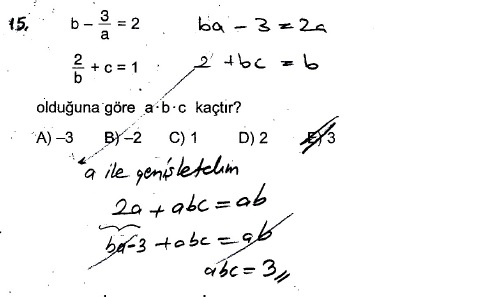 15. b - 3/a = 2 ba - 3 = 2a
2/b + c = 1 2 + bc = b
olduğuna göre a·b·c kaçtır?
A) –3 B) –2 C) 1 D) 2 E) 3
a ile genişletelim
2a + abc = ab
ba - 3 + abc = ab
abc = 3,,